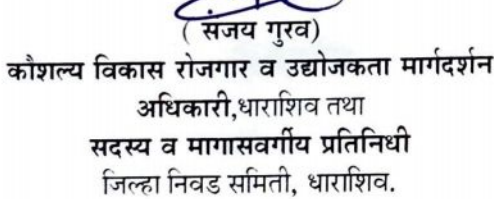 ( संजय गुरव)
कौशल्य विकास रोजगार व उद्योजकता मार्गदर्शन
अधिकारी,धाराशिव तथा
सदस्य व मागासवर्गीय प्रतिनिधी
जिल्हा निवड समिती, धाराशिव.